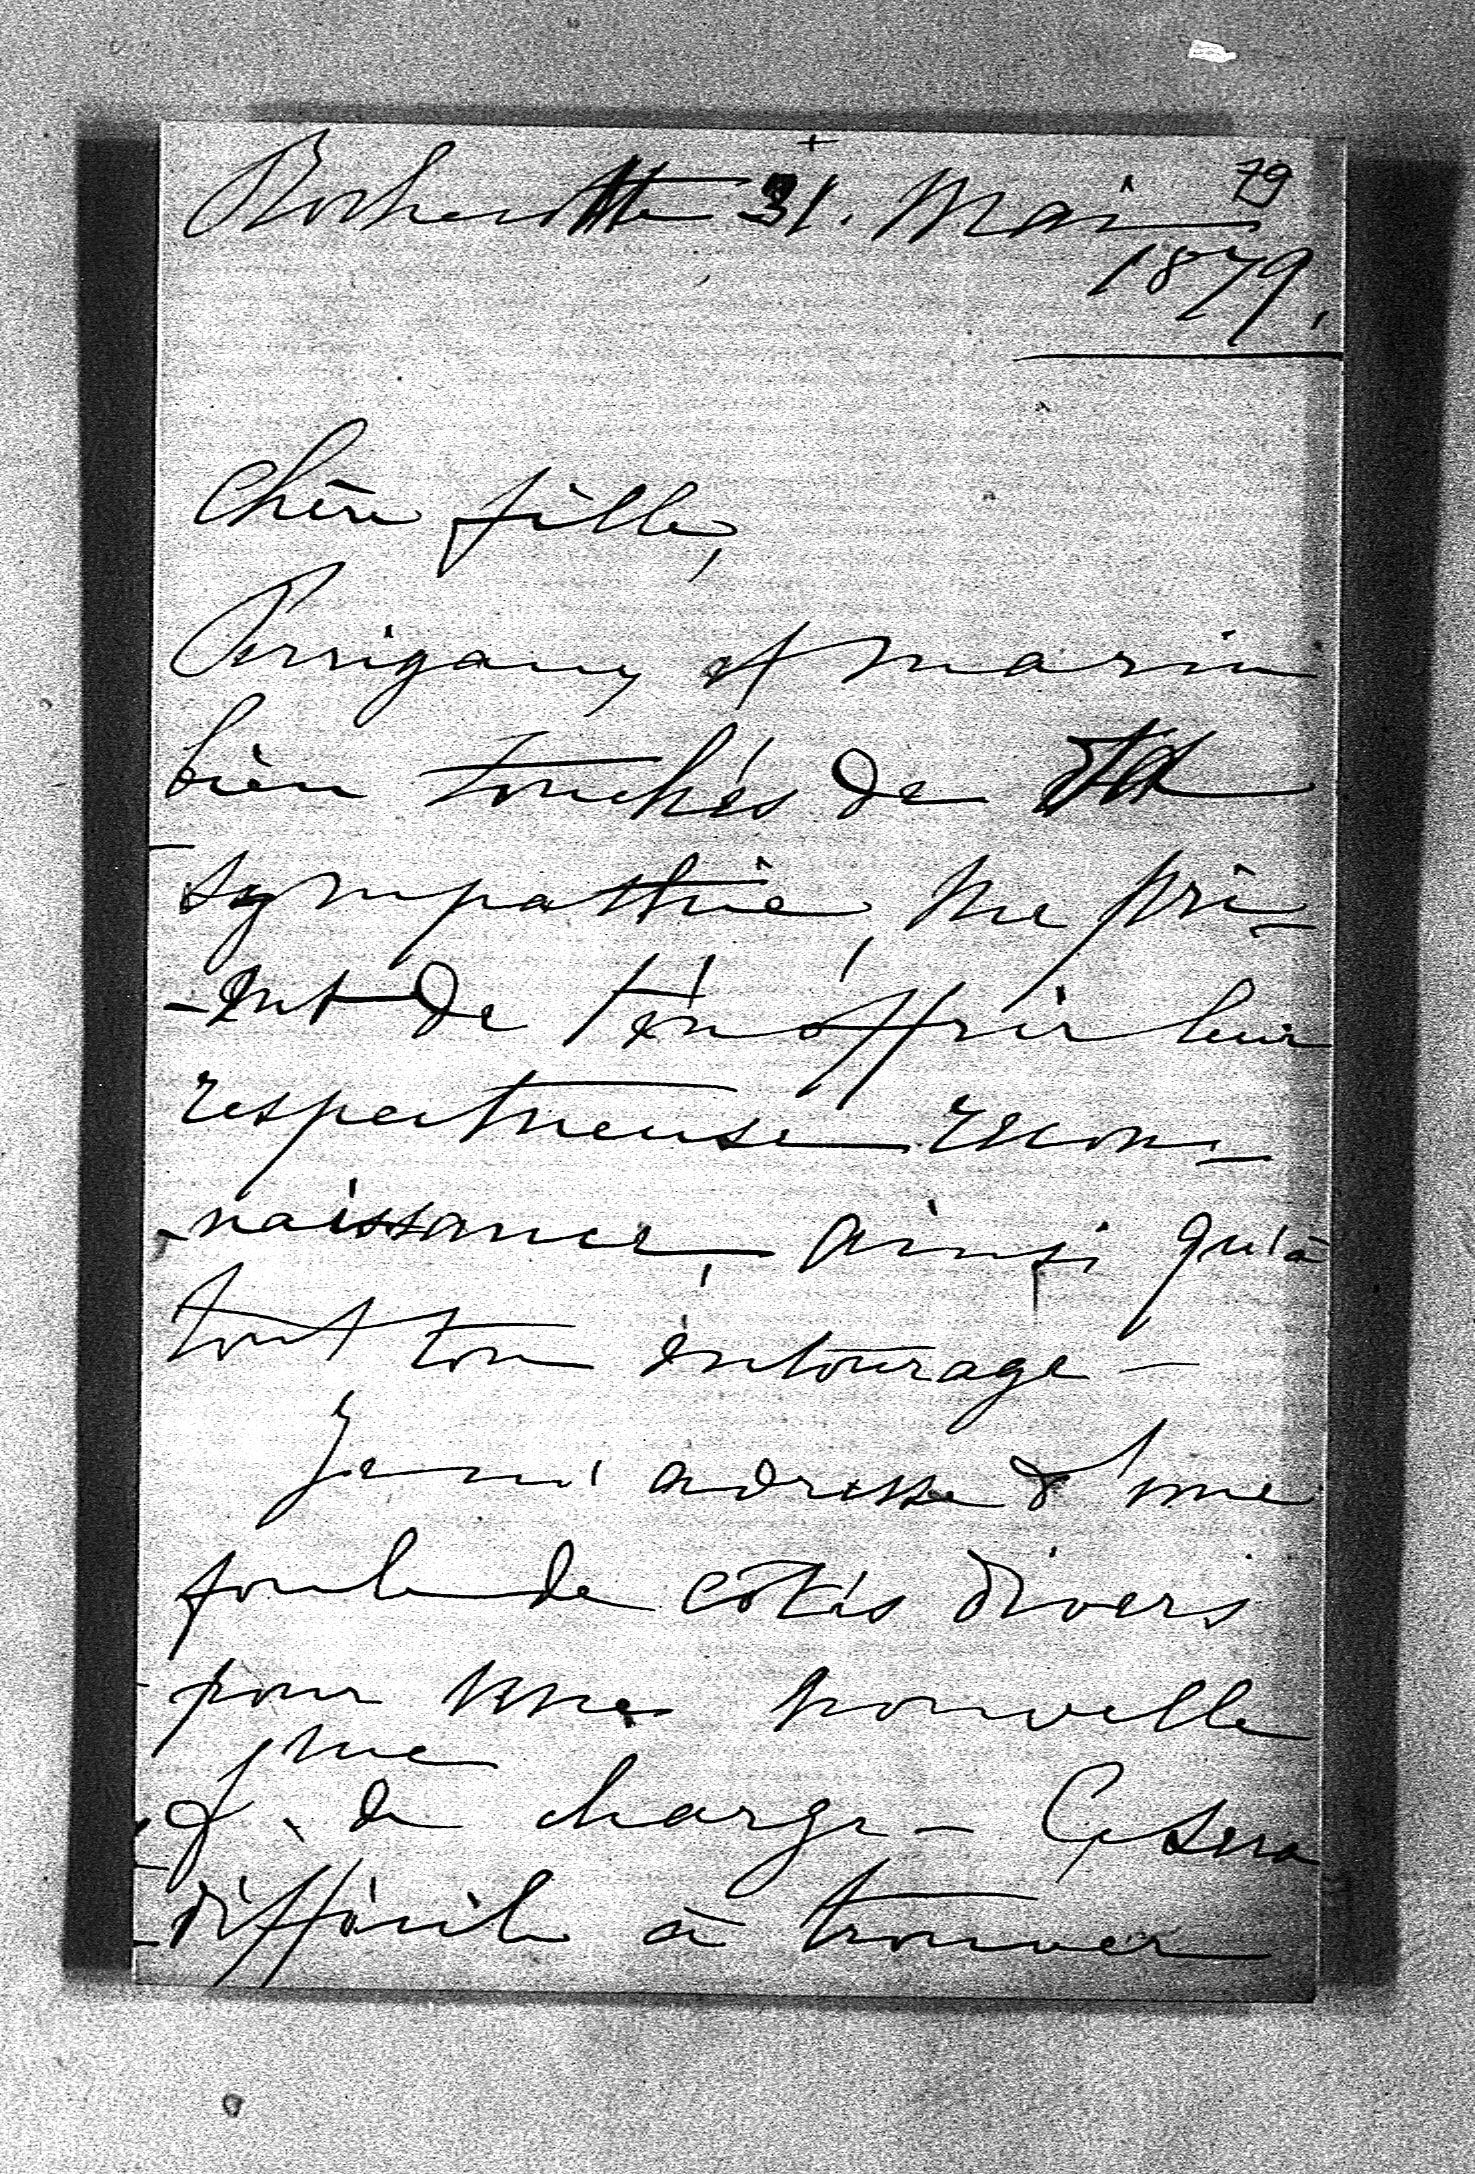 79
Rochecotte 31. Mai
1879.
Chère fille,
Perrigany et Marie
bien touchés de ta
sympathie, me pri-
-ent de t'en offrir leur
respectueuse recon-
-naissance, ainsi qu'à
tout ton entourage -
Je m'adresse d'une
foule de côtés divers
pour une nouvelle
fme de charge - Ce sera
difficile à trouver